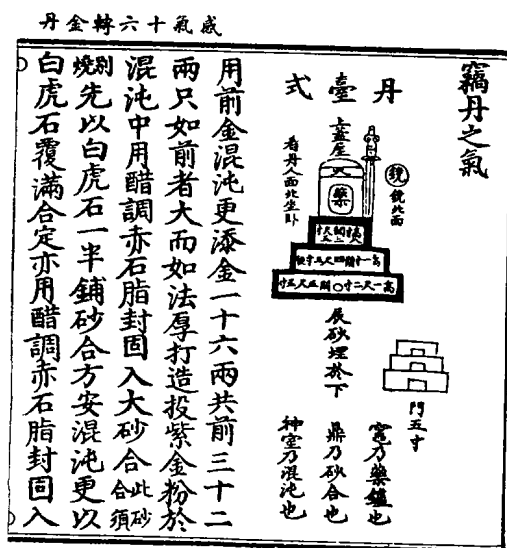 感氣十六轉金丹
竊丹之氣
丹臺式
鏡
鏡北面
上蓋屋
藥
看丹人面北坐卧
高一尺二寸〇闊五尺五寸
辰砂埋於下
門五寸
竈乃藥鑪也
鼎乃砂合也
神室乃混沌也
用前金混沌更添金一十六兩共前三十二
兩只如前者大而如法厚打造投紫金粉於
混沌中用醋調赤石脂封固入大砂合此砂合須
別燒先以白虎石一半鋪砂合方安混沌更以
白虎石覆滿合定亦用醋調赤石脂封固入